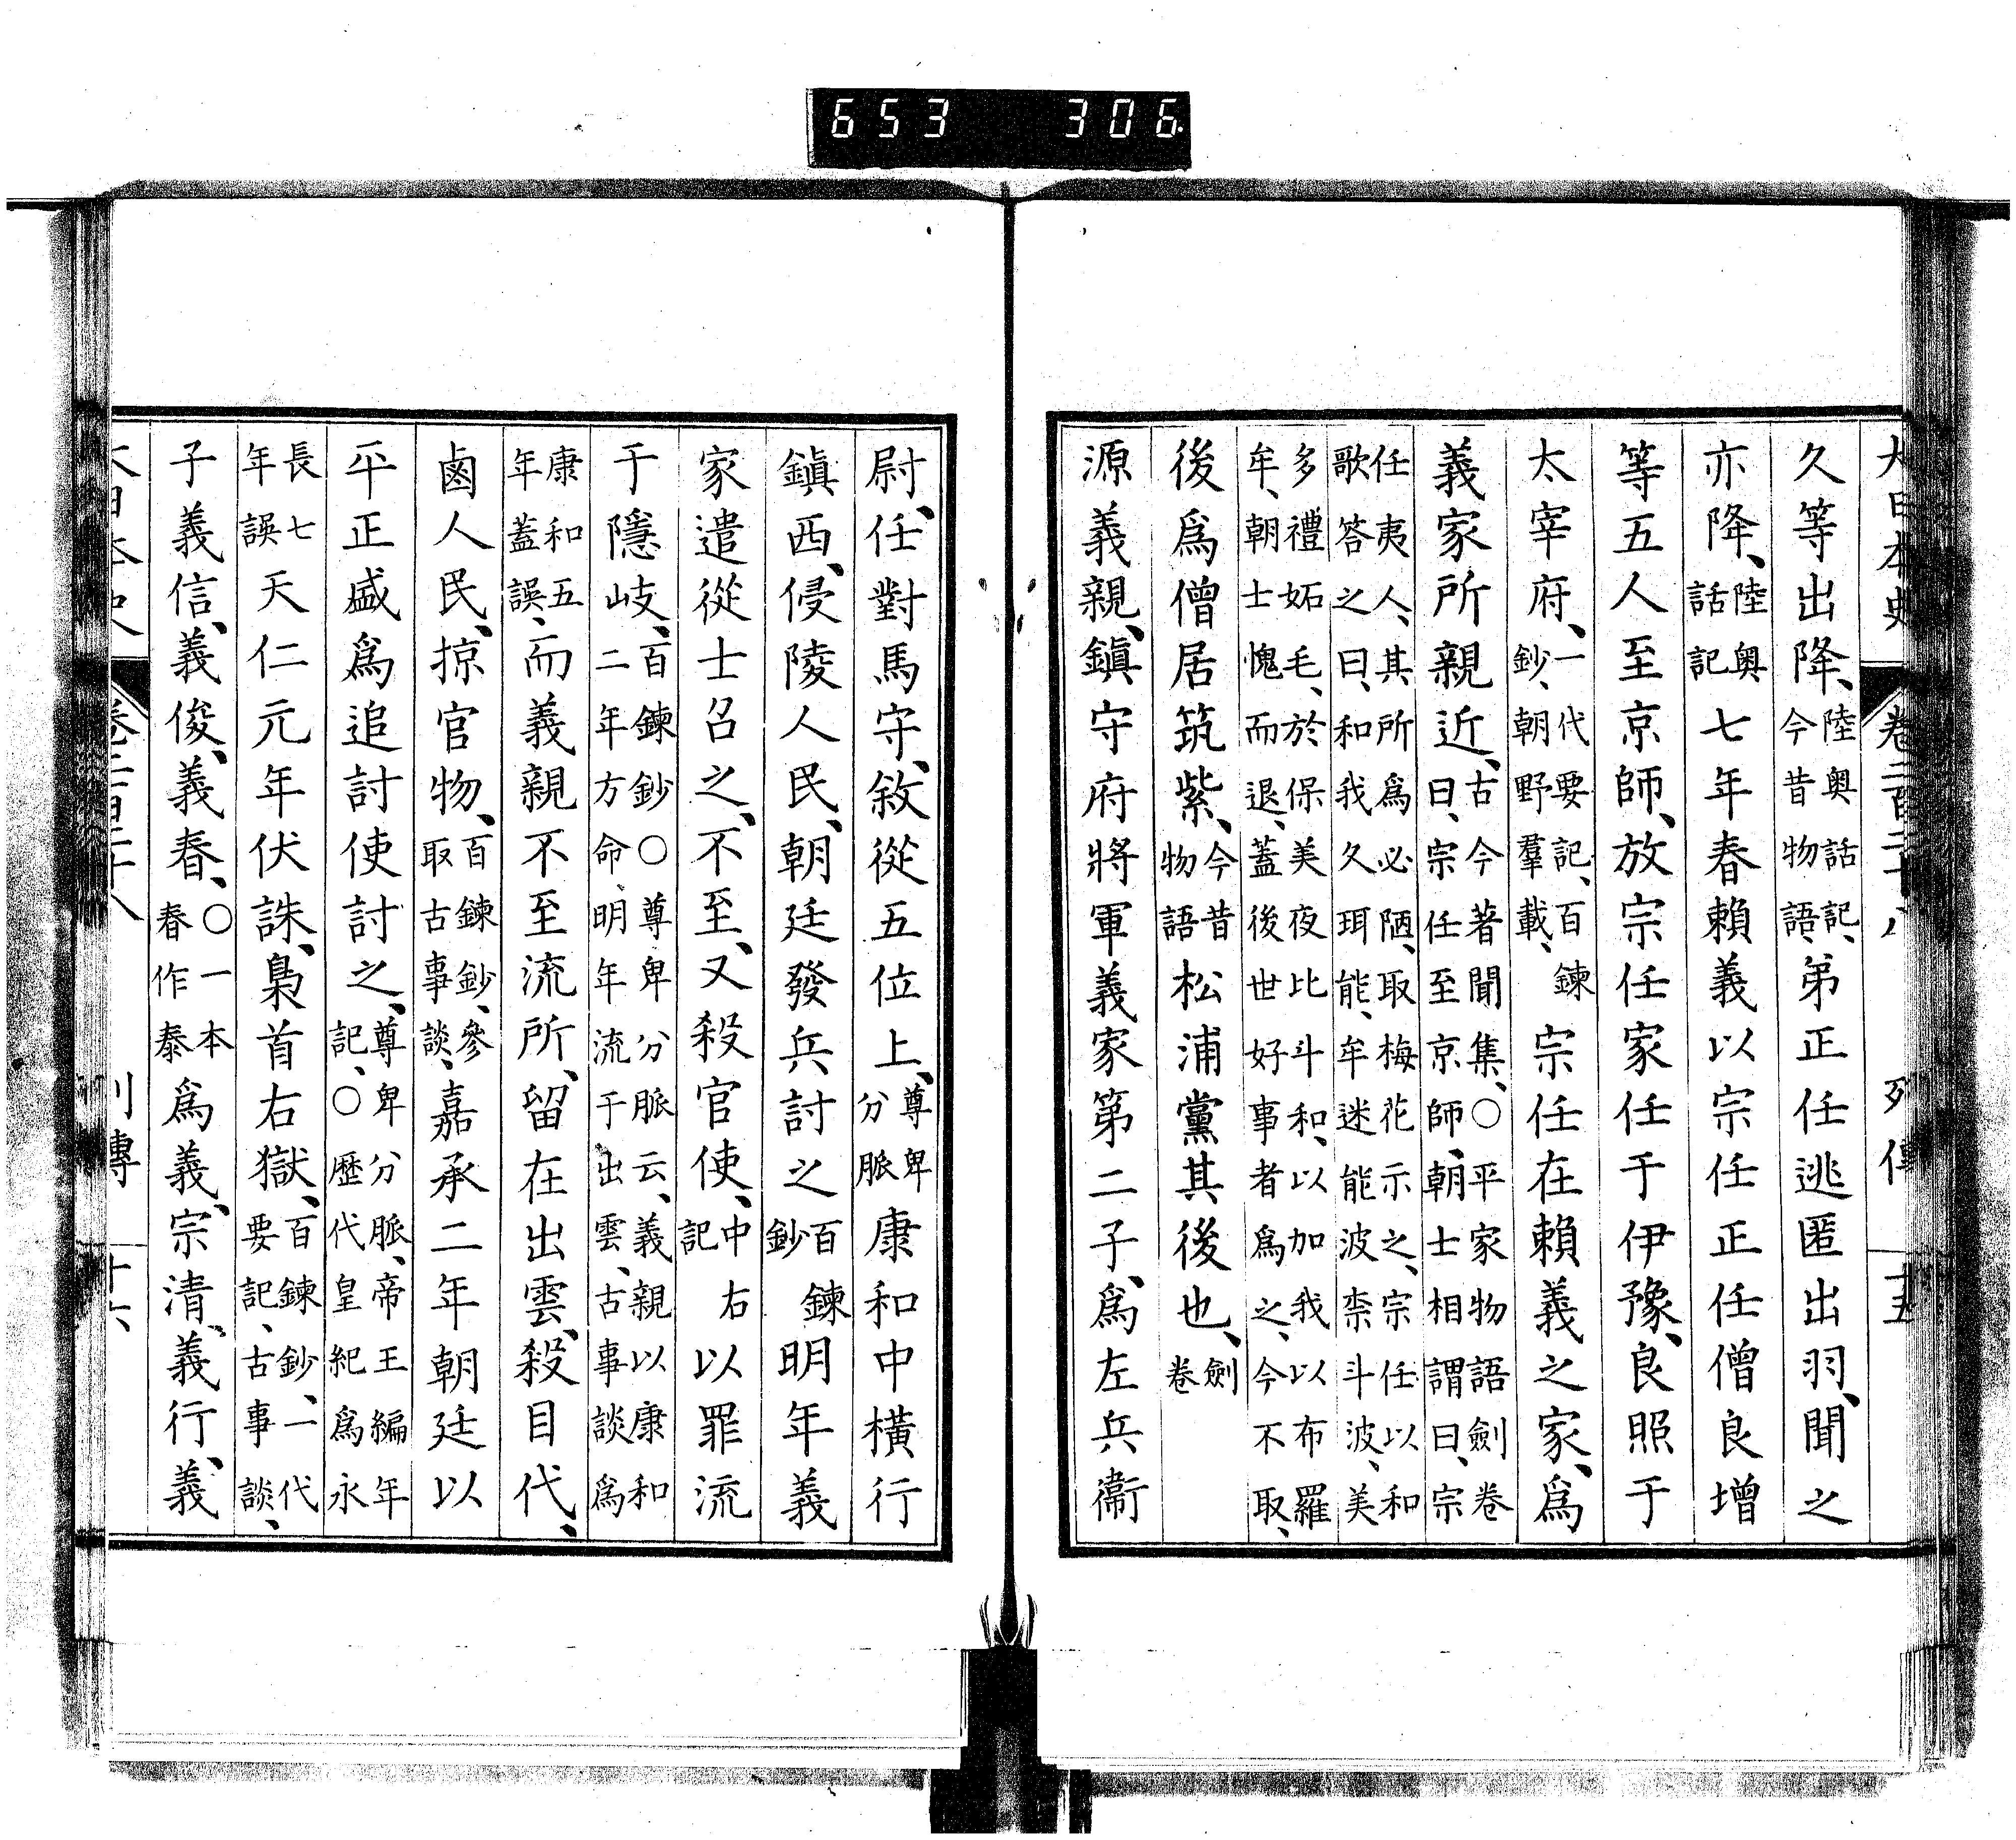 653 306
大日本史 卷二百二十八 列傳 十五
久等出降、陸奧話記、今昔物語、弟正任逃匿出羽、聞之
亦降、陸奧話記七年春賴義以宗任正任僧良增
等五人至京師、放宗任家任于伊豫、良照于
太宰府、一代要記、百鍊鈔、朝野羣載、宗任在賴義之家、爲
義家所親近、古今著聞集、○平家物語劍卷曰、宗任至京師、朝士相謂曰、宗
任夷人、其所爲必陋、取梅花示之、宗任以和歌答之曰、和我久珥能、牟迷能波柰斗波、美
多禮妬毛、於保美夜比斗和、以加我以布羅牟、朝士愧而退、蓋後世好事者爲之、今不取、
後爲僧居筑紫、今昔物語松浦黨其後也、劍卷
源義親、鎭守府將軍義家第二子、爲左兵衞
尉、任對馬守、敘從五位上、尊卑分脈康和中橫行
鎭西、侵陵人民、朝廷發兵討之百鍊鈔明年義
家遣從士召之、不至、又殺官使、中右記以罪流
于隱岐、百鍊鈔○尊卑分脈云、義親以康和二年方命、明年流于出雲、古事談爲
康和五年蓋誤、而義親不至流所、留在出雲、殺目代、
鹵人民、掠官物、百鍊鈔、參取古事談、嘉承二年朝廷以
平正盛爲追討使討之、尊卑分脈、帝王編年記、○歷代皇紀爲永
長七年誤天仁元年伏誅、梟首右獄、百鍊鈔、一代要記、古事談、
子義信、義俊、義春、○一本春作泰爲義、宗淸、義行、義
大日本史 卷二百二十八 列傳 十六